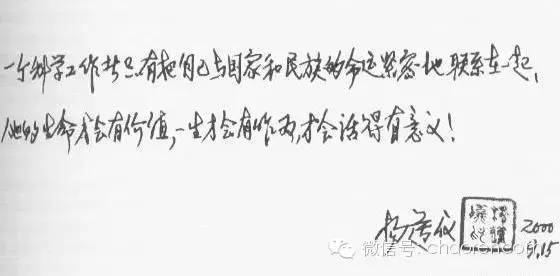 一个科学工作者只有把自己与国家和民族的命运紧密地联系在一起,
他的生命才会有价值,一生才会有作为,才会活得有意义!
2000
9.15
微信号: